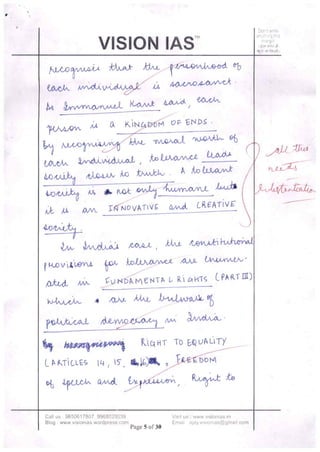 VISION IAS™
recognises that the personhood of
each individual is sacrosanct.
As Immanuel Kant said, each
person is a KINGDOM OF ENDS.
By recognising the moral worth of
each individual, tolerance leads
society closer to truth. A tolerant
society is not only humane but
it is an INNOVATIVE and CREATIVE
society.
all this
needs
substantiation
In India's case, the constitutional
provisions for tolerance are enumer-
ated in FUNDAMENTAL RIGHTS (PART III)
which are the bulwark of
political democracy in India.
By RIGHT TO EQUALITY
(ARTICLES 14, 15, FREEDOM
of speech and Expression, Right to
Call us : 9650617807, 9968029039
Visit us : www.visionias.in
Blog : www.visionias.wordpress.com
Page 5 of 30